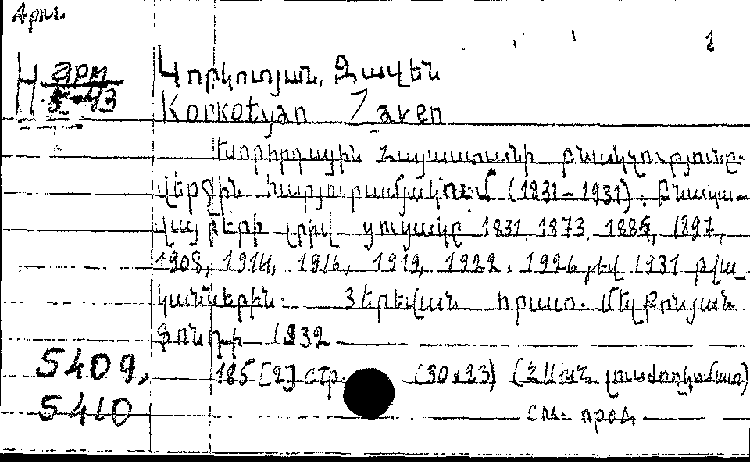 Арм.
1
H Арм
5-43
Կորկոտյան, Զավեն
Korkotyan Zaven
Խորհրդային Հայաստանի բնակչությունը
վերջին հարյուրամյակում (1831-1931). Բնակա-
վայրերի լրիվ ցուցակը 1831, 1873, 1886, 1897,
1908, 1914, 1916, 1919, 1922, 1926 եվ 1931 թվա
կաններին. Յերեվան հրատ. Մելքոնյան
Ֆոնդի 1932
5409, 185 [2] стр. (30x23)
5410